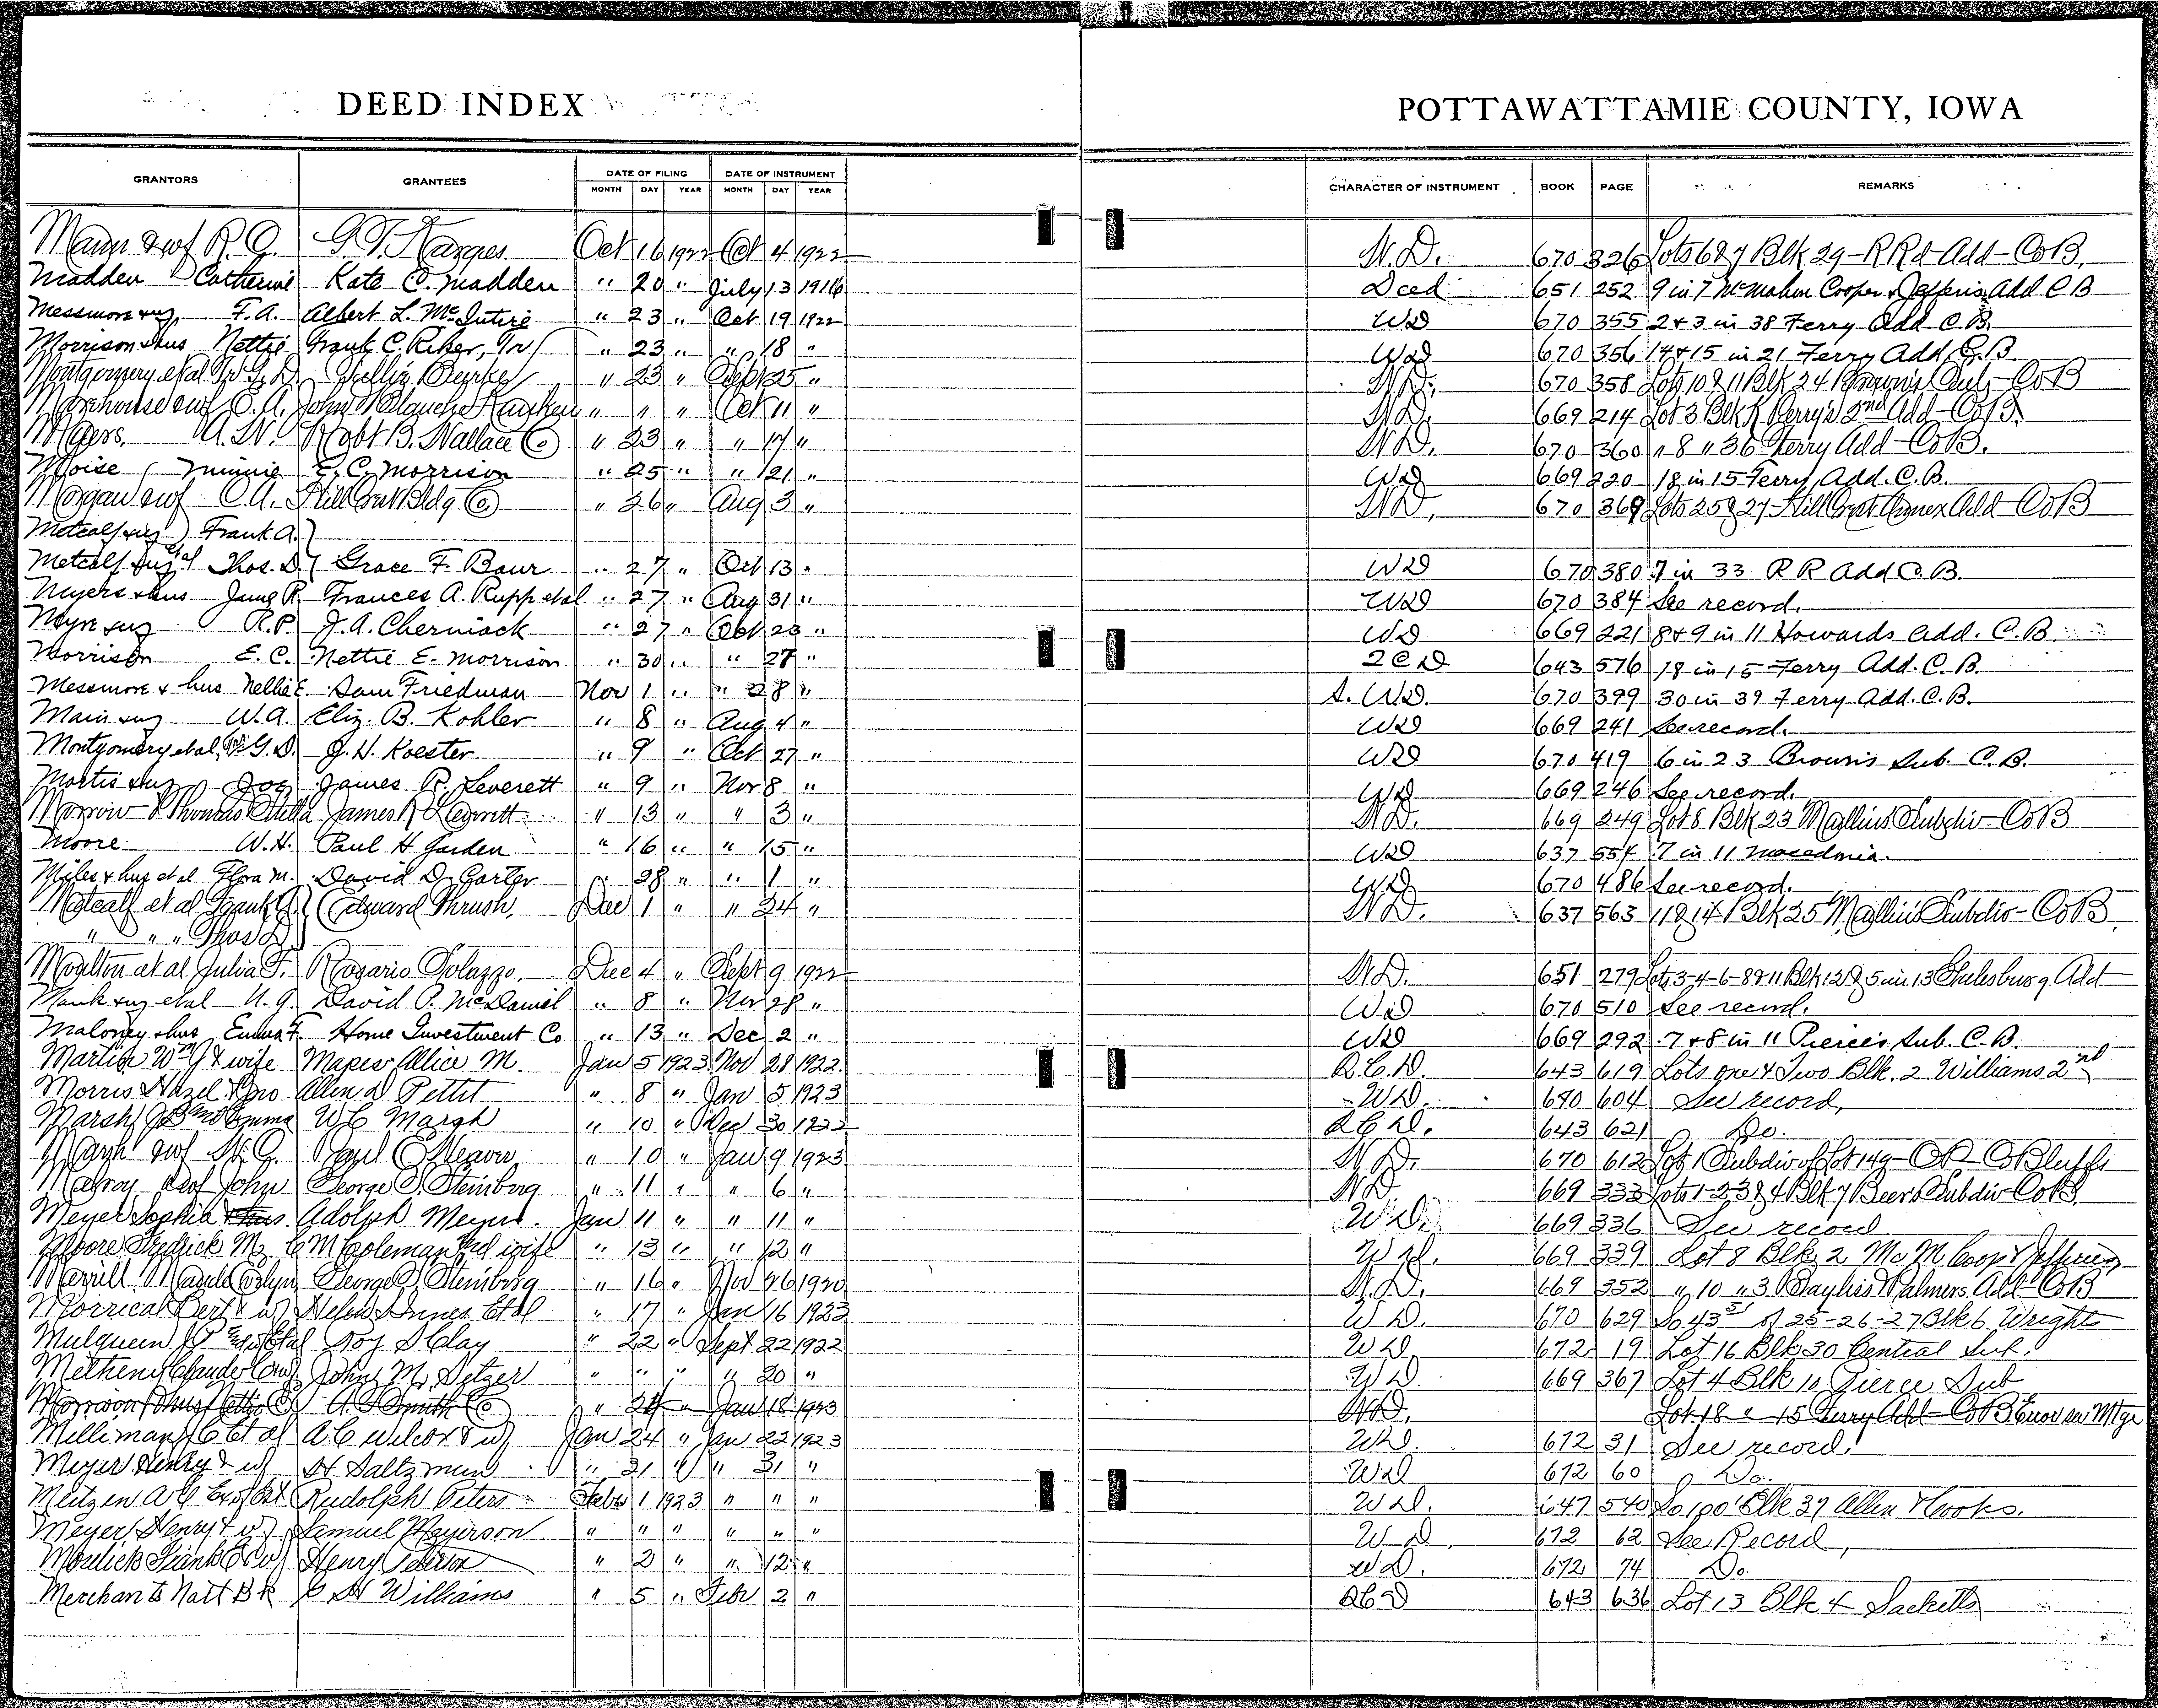 DEED INDEX
POTTAWATTAMIE COUNTY, IOWA
GRANTORS GRANTEES DATE OF FILING DATE OF INSTRUMENT CHARACTER OF INSTRUMENT BOOK PAGE REMARKS
MONTH DAY YEAR MONTH DAY YEAR
& wf R. G. Oct 16 1922 Oct 4 1922 W.D. 670 326 Lots 6 & 7 Blk 29 - R Rd Add - Co B.
Madden Catherine Kate C. Madden " 20 " July 13 1916 Deed 651 252 9 in 7 McMahon Cooper & Jefferis Add C B
Messmore & ux, F. A. Albert L. McIntire " 23 " Oct 19 1922 WD 670 355 2 & 3 in 38 Ferry Add C. B.
Morrison & hus Nettie Frank C. Riker, Jr " 23 " " 18 " WD 670 356 14 & 15 in 21 Ferry Add C. B
Montgomery et al W. G. D. Burke " 23 " Sept 25 " W.D. 670 358 Lots 10 & 11 Blk 24 Browns Sub - Co B
Morehouse & wf E. A. John & Blanche " " " Oct 11 " W.D. 669 214 Lot 3 Blk Perry's 2nd Add - Co B.
Myers, A. W. Robt B. Wallace Co " 23 " " 17 " W.D. 670 360 " 8 " 36 Ferry Add - Co B.
Moise, Minnie E. C. Morrison " 25 " " 21 " WD 669 220 18 in 15 Ferry Add. C. B.
Morgan & wf C. A. Hill Crest Bldg Co " 26 " Aug 3 " W.D. 670 369 Lots 25 & 27 Hill Crest Annex Add - Co B
Metcalf & ux Frank A.
Metcalf & ux et al Thos. D. Grace F. Baur " 27 " Oct 13 " WD 670 380 7 in 33 R R Add C. B.
Myers & hus Jane R. Frances A. Rupp et al " 27 " Aug 31 " WD 670 384 See record.
& ux R. P. J. A. Cherniack " 27 " Oct 23 " WD 669 221 8 & 9 in 11 Howards Add. C. B
Morrison E. C. Nettie E. Morrison " 30 " " 27 " 2CD 643 576 18 in 15 Ferry Add. C. B.
Messmore & hus Nellie E. Sam Friedman Nov 1 " " 28 " S. W.D. 670 399 30 in 39 Ferry Add. C. B.
Main & ux W. A. Eliz. B. Kohler " 8 " Aug 4 " WD 669 241 See record.
Montgomery et al, W. G. D. J. H. Koester " 9 " Oct 27 " WD 670 419 6 in 23 Browns Sub. C. B.
& ux Joe James R. Leverett " 9 " Nov 8 " WD 669 246 See record.
Morrow & Thomas Stella James R Leverett " 13 " " 3 " W.D. 669 249 Lot 8 Blk 23 Mullins Subdiv - Co B
Moore W. H. Paul H Garden " 16 " " 15 " WD 637 554 7 in 11 Macedonia.
Miles & hus et al Flora M. David D. Carter " 28 " " 1 " WD 670 486 See record.
Metcalf et al Frank A. Edward Thrush, Dec 1 " " 24 " W.D. 637 563 11 & 14 Blk 25 Mullins Subdiv - Co B.
" " " Thos D.
Moulton et al Julia F. Rosario Dec 4 " Sept 9 1922 W.D. 651 279 Lots 3-4-6-8 & 11 Blk 12 & 5 in 13 Add
& ux et al David O. McDaniel " 8 " Nov 28 " WD 670 510 See record.
Maloney & hus Emma F. Home Investment Co " 13 " Dec 2 " WD 669 292 7 & 8 in 11 Pierce's Sub. C. B.
Martin Wm J & wife Mapes Allice M. Jan 5 1923 Nov 28 1922 Q.C.D. 643 619 Lots one & Two Blk. 2 Williams 2nd
Morris Hazel & Allen D Pettit " 8 " Jan 5 1923 W D. 670 604 See record,
Marsh Emma W C Marsh " 10 " Dec 30 1922 Q C D. 643 621 Do.
Marsh & wf W. C. " 10 " Jan 9 1923 W.D. 670 612 Lot 1 Subdiv of Lot 149 - Bluffs
& wf John George S. Steinberg " 11 " " 6 " W.D. 669 333 Lots 1-2 3 & 4 Blk 7 Beers Subdiv Co B.
Meyer Sophia Adolph Meyer. Jan 11 " " 11 " W D. 669 336 See record
Moore Fredrick M, C M Coleman and wife " 13 " " 12 " W D. 669 339 Lot 8 Blk 2 Mc M Coop & Jefferies
Merrill George S. Steinberg " 16 " Nov 26 1920 W.D. 669 352 " 10 " 3 Bayliss & Palmers Add Co B
Morrical Bert & w Helen Innes Et al " 17 " Jan 16 1923 W D. 670 629 So 43 of 25-26-27 Blk 6 Wrights
Mulqueen Et al Roy S Clay " 22 " Sept 22 1922 W D 672 19 Lot 16 Blk 30 Central Sub.
Metheny Claude John M. Setzer " " " " 20 " W D 669 367 Lot 4 Blk 10 Pierce Sub
Morrison & hus Nettie E A. S Smith Co " 24 " Jan 18 1923 W.D. Lot 18 " 15 Ferry Add - Co B Error see Mtge
Milliman Et al A C Wilcox & w Jan 24 " Jan 22 1923 WD. 672 31 See record.
Meyer Henry & w H Saltzman " 31 " " 31 " WD 672 60 Do.
Rudolph Peters Feb 1 1923 " " " W D. 647 540 So 100' Blk 37 Allen & Cooks.
Meyer Henry & w Samuel Meyerson " " " " " " W D. 672 62 See Record,
Frank Henry " 2 " " 12 " WD. 672 74 Do
Merchants Natl Bk C H Williams " 5 " Feb 2 " QCD 643 636 Lot 13 Blk 4 Sacketts